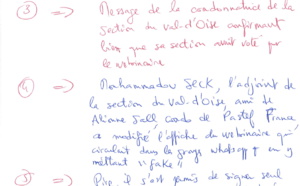 ③ => Message de la coordonnatrice de la
section du val d'Oise confirmant
bien que sa section avait voté par
le webinaire
④ => Mahammadou SECK, l'adjoint de
la section du val d'Oise, ami de
Aliou Sall coordo de Pastef France
a modifié l'affiche du webinaire qui
circulait dans le groupe whatsapp en y
mettant "fake"
⑤ => Pire, il s'est permis de signer seul